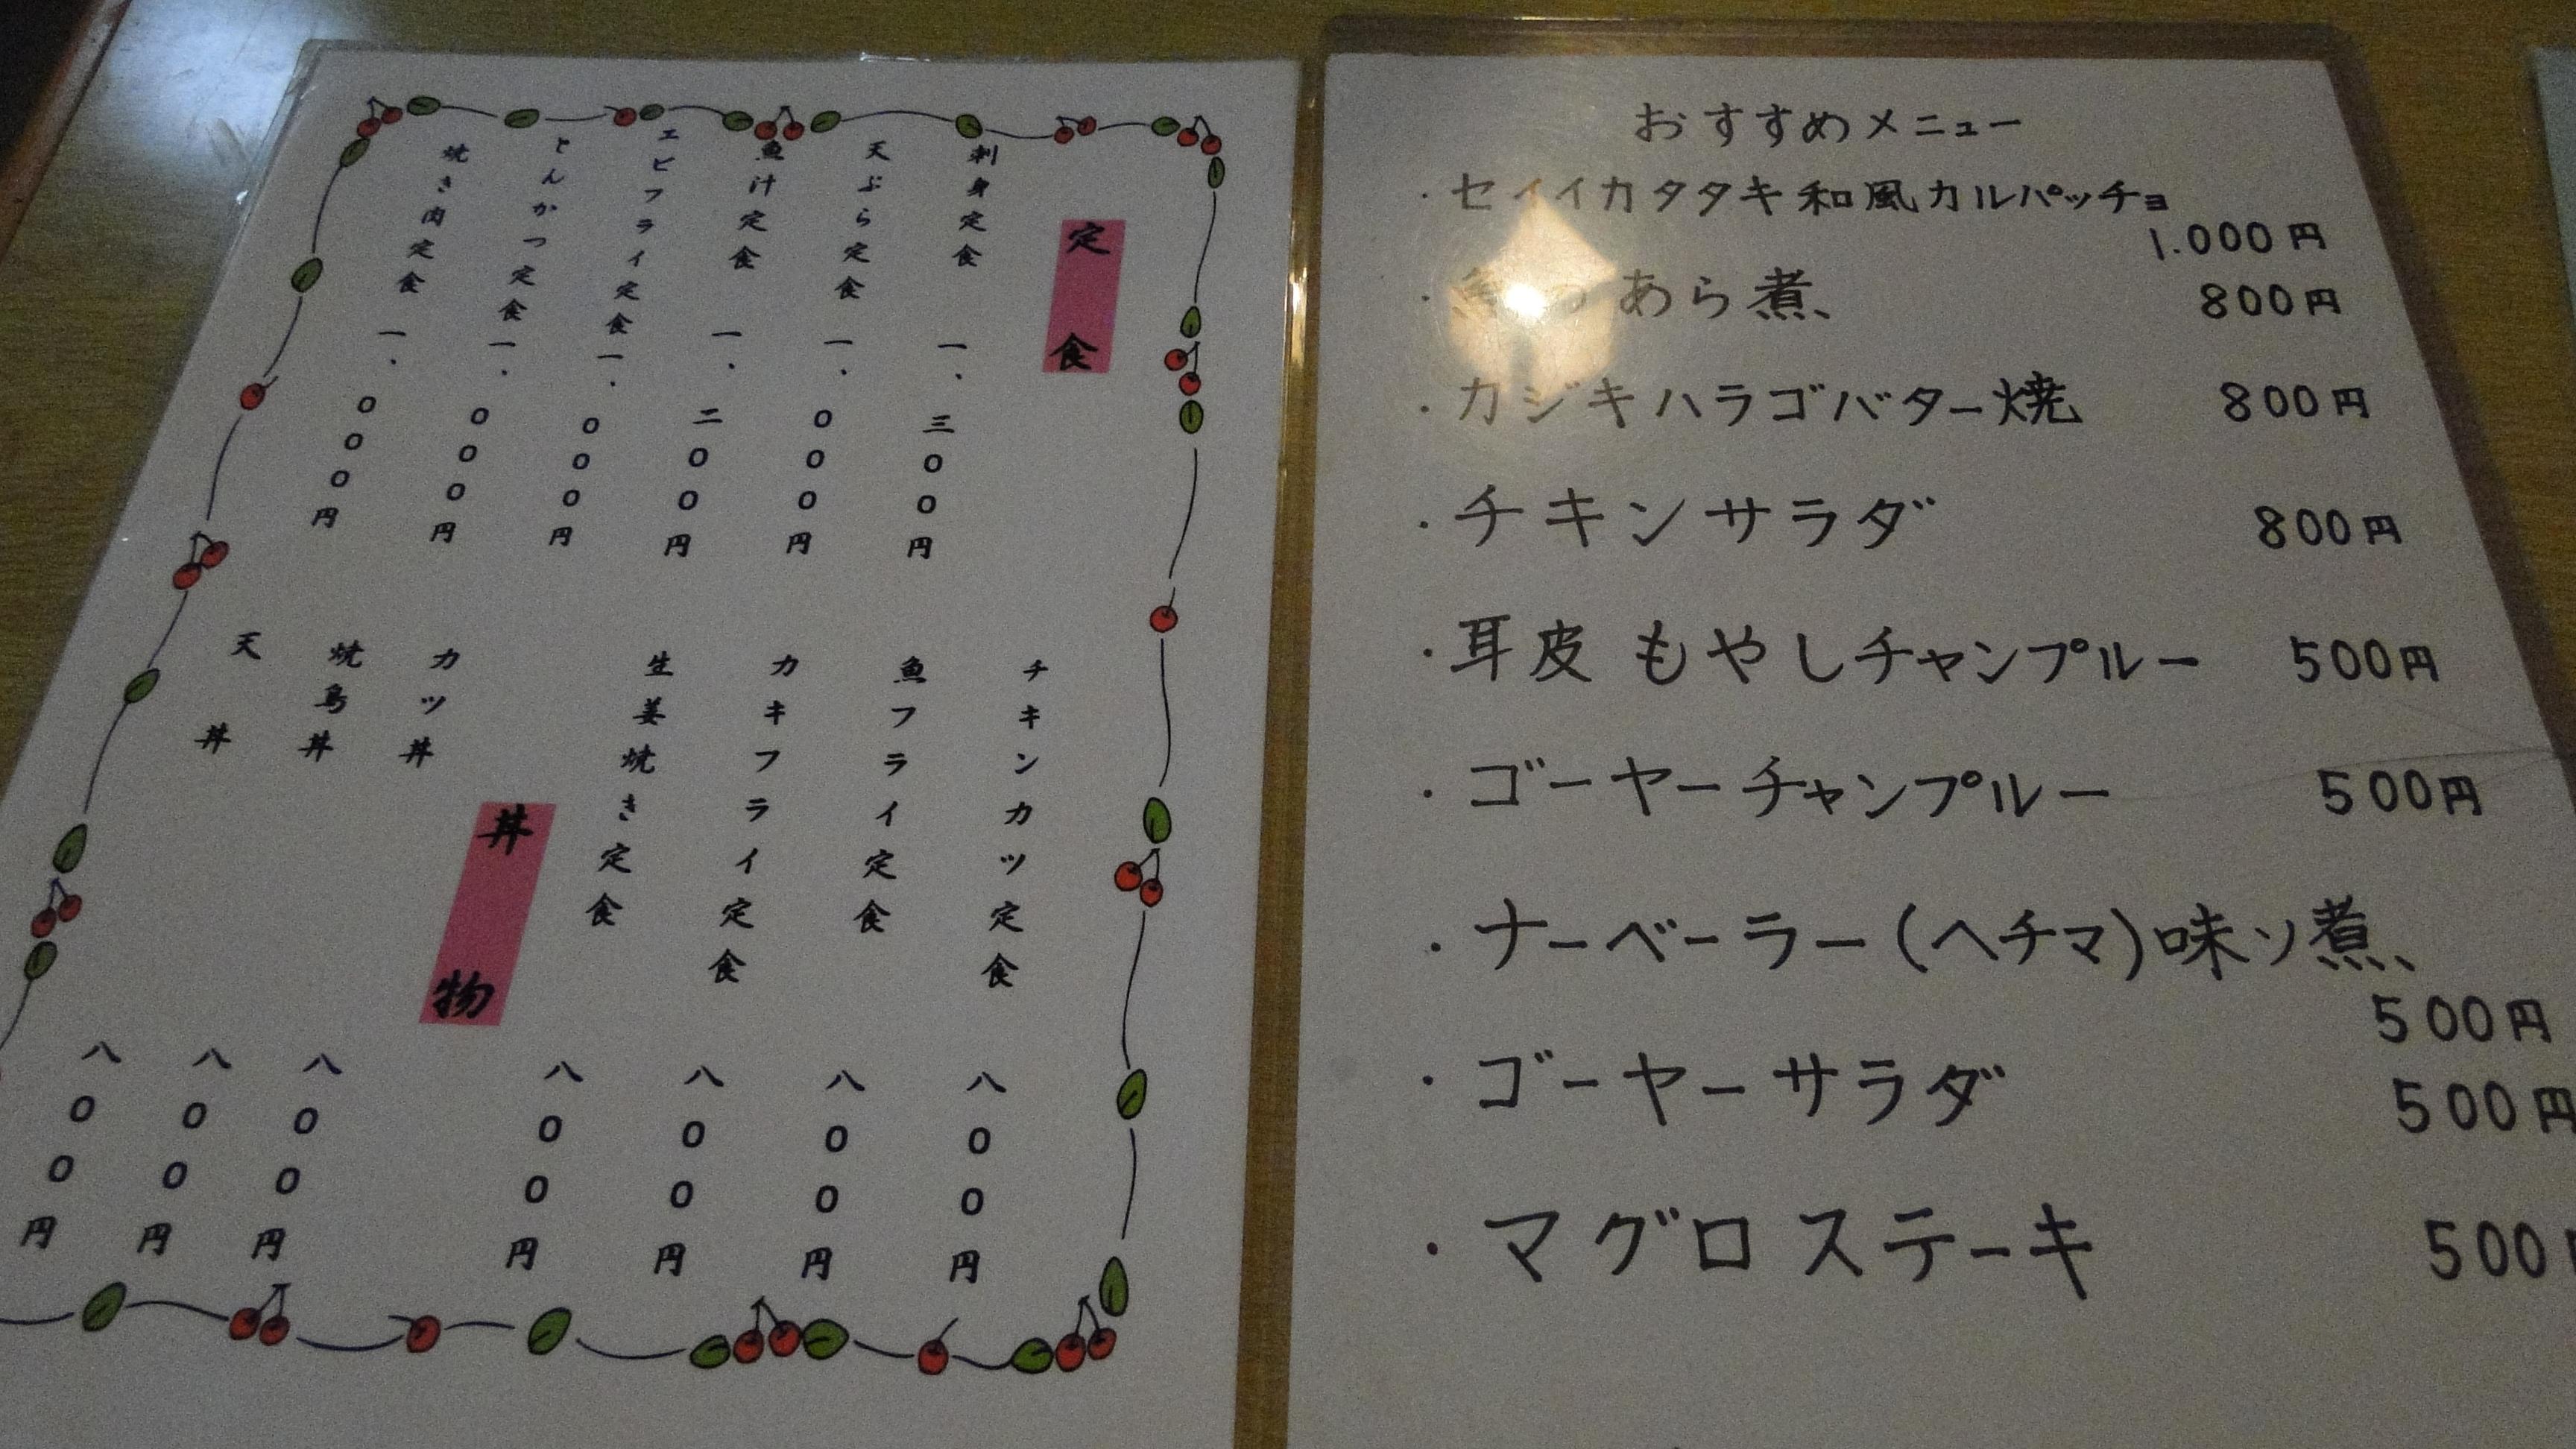 定食
刺身定食 一、三〇〇円
天ぷら定食 一、〇〇〇円
魚汁定食 一、二〇〇円
エビフライ定食 一、〇〇〇円
とんかつ定食 一、〇〇〇円
焼き肉定食 一、〇〇〇円
チキンカツ定食 八〇〇円
魚フライ定食 八〇〇円
カキフライ定食 八〇〇円
生姜焼き定食 八〇〇円
丼物
カツ丼 八〇〇円
焼鳥丼 八〇〇円
天丼 八〇〇円
おすすめメニュー
・セイイカタタキ和風カルパッチョ
1.000円
・あら煮 800円
・カジキハラゴバター焼 800円
・チキンサラダ 800円
・耳皮もやしチャンプルー 500円
・ゴーヤーチャンプルー 500円
・ナーベーラー(ヘチマ)味ソ煮
500円
・ゴーヤーサラダ 500円
・マグロステーキ 500